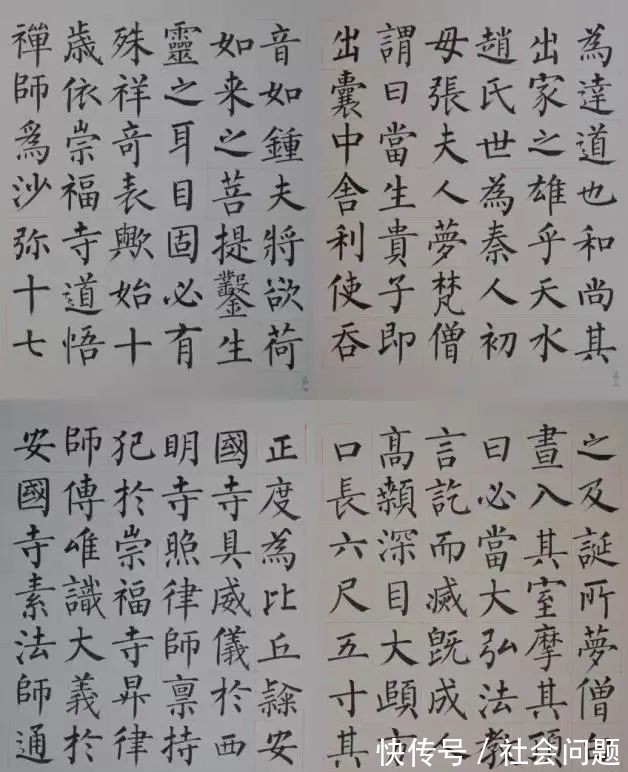 為達道也和尚其
出家之雄乎天水
趙氏世為秦人初
毋張夫人夢梵僧
謂曰當生貴子即
出囊中舍利使吞
之及誕所夢僧白
晝入其室摩其頂
曰必當大弘法教
言訖而滅旣成人
高顙深目大頤方
口長六尺五寸其
音如鍾夫將欲荷
如来之菩提鑿生
靈之耳目固必有
殊祥奇表歟始十
歳依崇福寺道悟
禪師爲沙弥十七
正度為比丘隸安
國寺具威儀於西
明寺照律師禀持
犯於崇福寺昇律
師傳唯識大義於
安國寺素法師通
快传号 / 社会问题